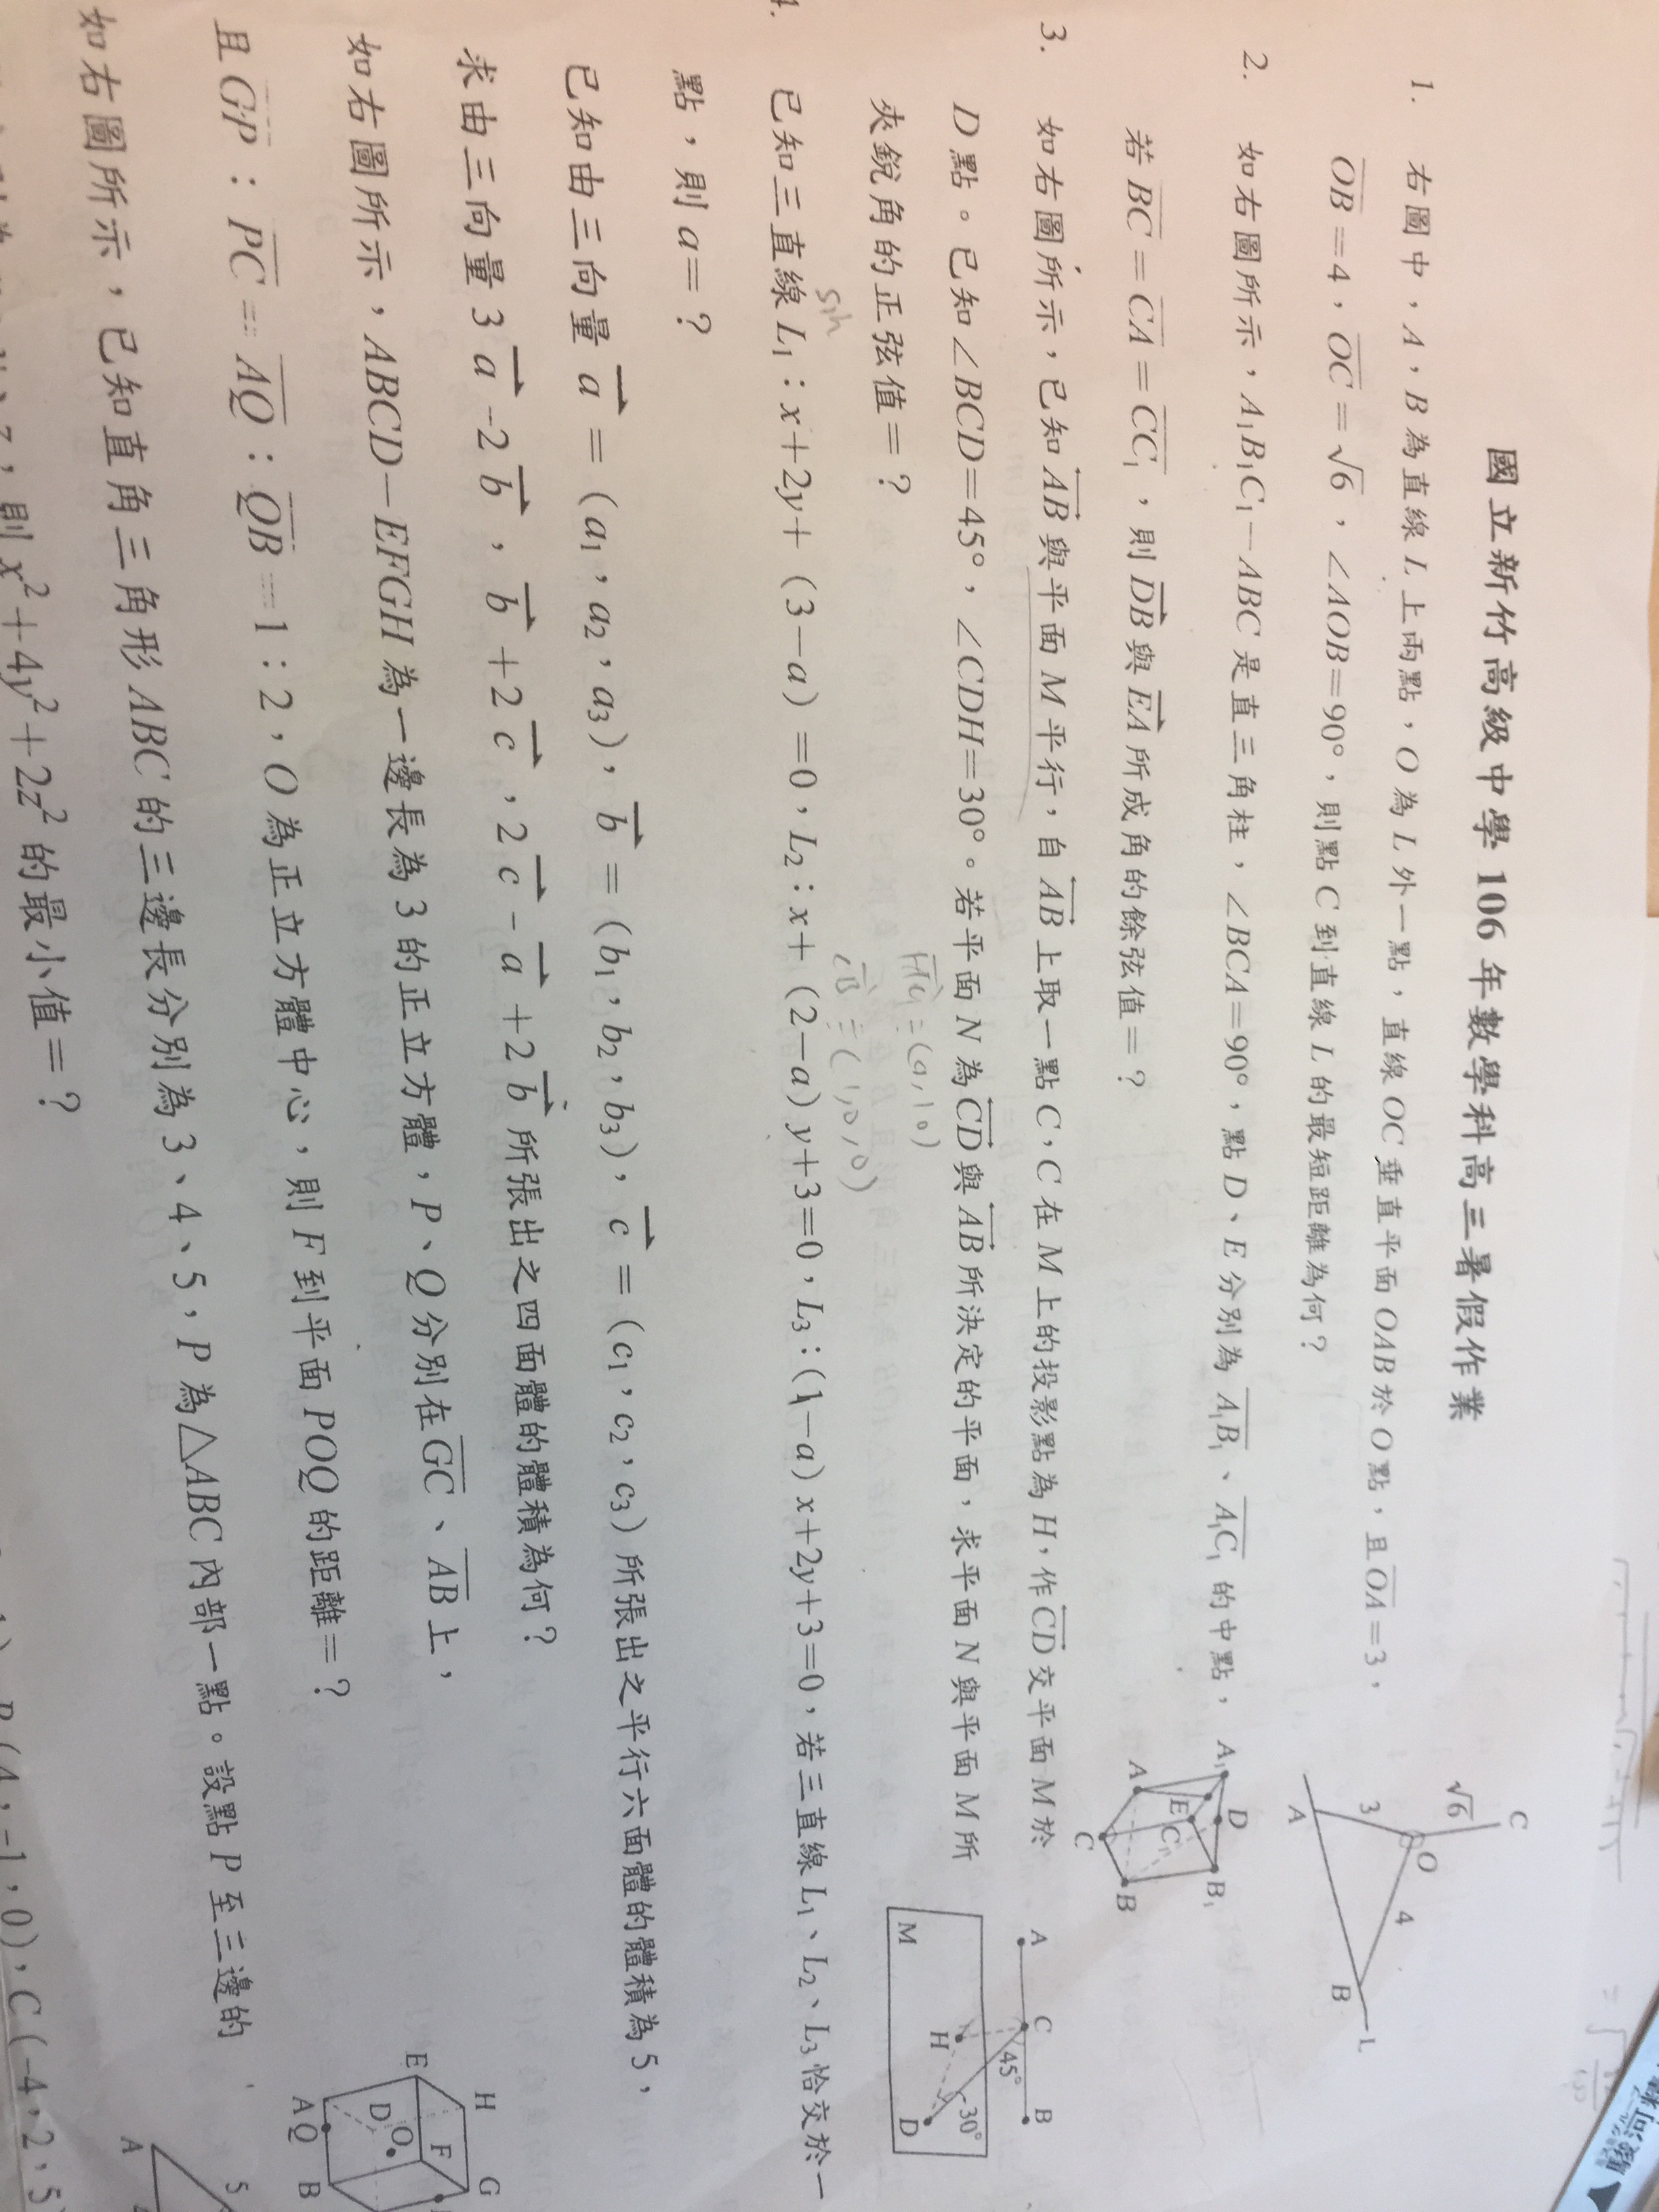 國立新竹高級中學 106 年數學科高三暑假作業
1. 右圖中，A，B 為直線 L 上兩點，O 為 L 外一點，直線 OC 垂直平面 OAB 於 O 點，且 OA=3，
OB=4，OC=√6，∠AOB=90°，則點 C 到直線 L 的最短距離為何？
2. 如右圖所示，A₁B₁C₁－ABC 是直三角柱，∠BCA=90°，點 D、E 分別為 A₁B₁、A₁C₁ 的中點，
若 BC=CA=CC₁，則 DB 與 EA 所成角的餘弦值=？
3. 如右圖所示，已知 AB 與平面 M 平行，自 AB 上取一點 C，C 在 M 上的投影點為 H，作 CD 交平面 M 於
D 點。已知∠BCD=45°，∠CDH=30°。若平面 N 為 CD 與 AB 所決定的平面，求平面 N 與平面 M 所
夾銳角的正弦值=？
sin
已知三直線 L₁：x+2y+（3－a）=0，L₂：x+（2－a）y+3=0，L₃：(1－a）x+2y+3=0，若三直線 L₁、L₂、L₃ 恰交於一
點，則 a=？
已知由三向量 a =（a₁，a₂，a₃），b =（b₁，b₂，b₃），c =（c₁，c₂，c₃）所張出之平行六面體的體積為 5，
求由三向量 3 a -2 b，b +2 c，2 c - a +2 b 所張出之四面體的體積為何？
如右圖所示，ABCD－EFGH 為一邊長為 3 的正立方體，P、Q 分別在 GC、AB 上，
且 GP：PC=AQ：QB=1：2，O 為正立方體中心，則 F 到平面 POQ 的距離=？
如右圖所示，已知直角三角形 ABC 的三邊長分別為 3、4、5，P 為△ABC 內部一點。設點 P 至三邊的
z，則 x²+4y²+2z² 的最小值=？
(4，-1，0)，C (-4，2，5)
C
√6
O
3
4
A
B
L
A₁
D
B₁
E
C₁
A
C
B
A
C
B
45°
H
30°
M
D
H
G
E
F
D
O
A
Q
B
A
5